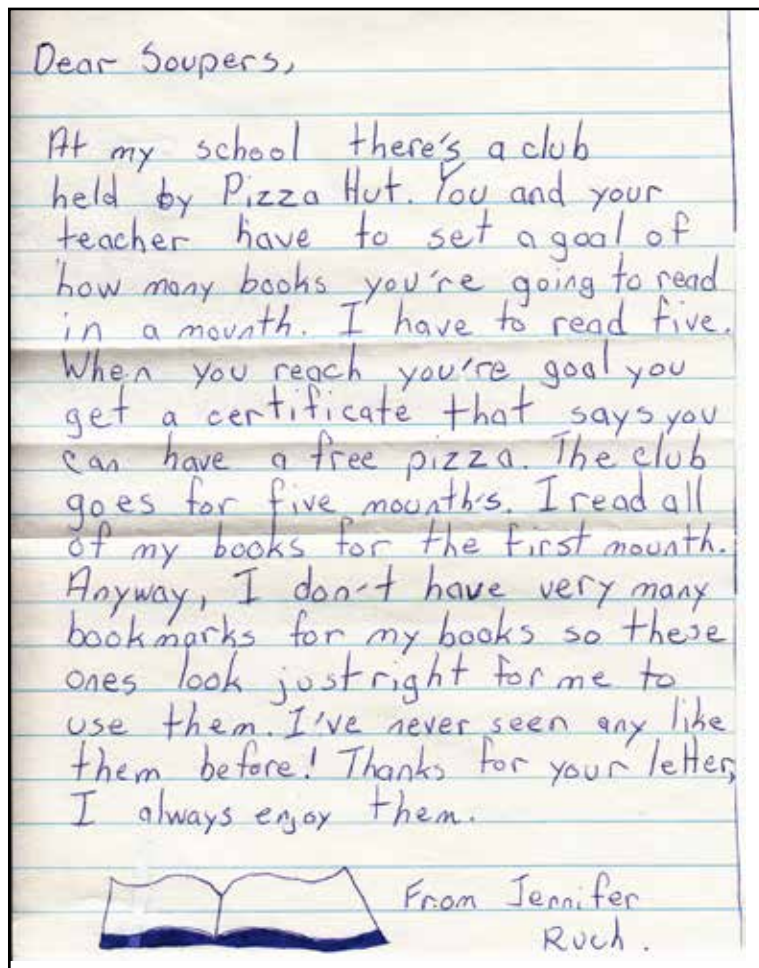 Dear Soupers,
At my school there's a club
held by Pizza Hut. You and your
teacher have to set a goal of
how many books you're going to read
in a mounth. I have to read five.
When you reach you're goal you
get a certificate that says you
can have a free pizza. The club
goes for five mounth's. I read all
of my books for the first mounth.
Anyway, I don't have very many
bookmarks for my books so these
ones look just right for me to
use them. I've never seen any like
them before! Thanks for your letter,
I always enjoy them.
From Jennifer
Ruch.